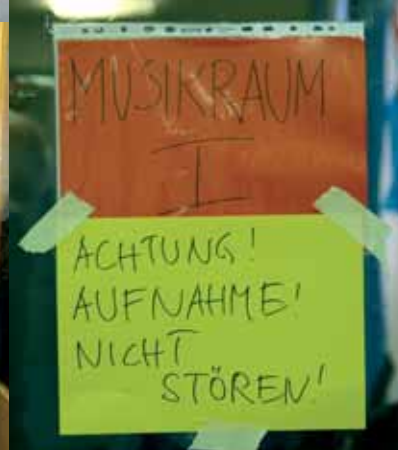 MUSIKRAUM
I
ACHTUNG!
AUFNAHME!
NICHT
STÖREN!